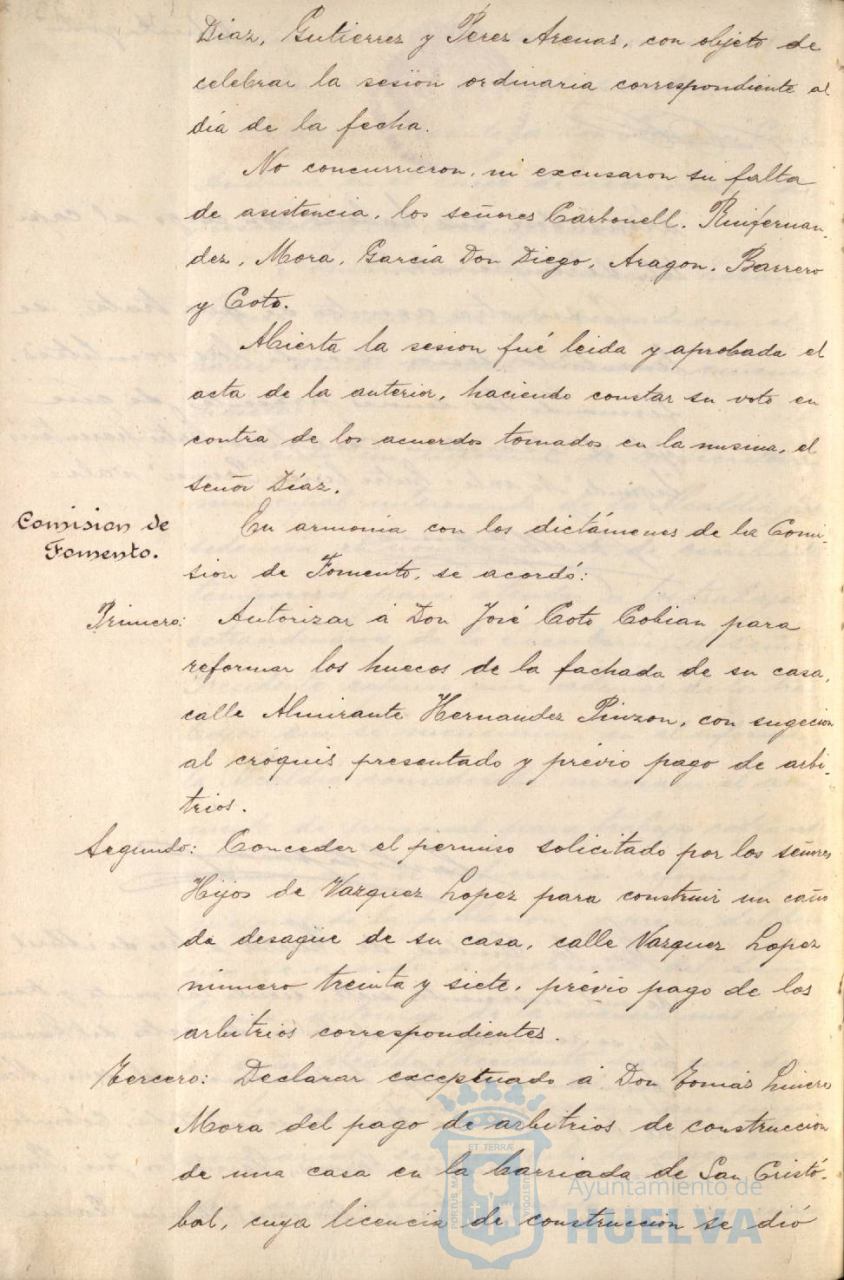 Diaz, Gutierrez y Pérez Arenas, con objeto de
celebrar la sesion ordinaria correspondiente al
dia de la fecha.
No concurrieron, ni excusaron su falta
de asistencia, los señores Carbonell, Ruifernan-
dez, Mora, García Don Diego, Aragon, Barrero
y Coto.
Abierta la sesion fué leida y aprobada el
acta de la anterior, haciendo constar su voto en
contra de los acuerdos tomados en la misma, el
señor Díaz.
Comision de
Fomento.
En armonia con los dictámenes de la Comi-
sion de Fomento, se acordó:
Primero: Autorizar á Don José Coto Cobian para
reformar los huecos de la fachada de su casa,
calle Almirante Hernandez Pinzon, con sugecion
al cróquis presentado y prévio pago de arbi-
trios.
Segundo: Conceder el permiso solicitado por los señores
Hijos de Vazquez Lopez para construir un caño
de desagüe de su casa, calle Vazquez Lopez
número treinta y siete, prévio pago de los
arbitrios correspondientes.
Tercero: Declarar exceptuado á Don Tomás Linero
Mora del pago de arbitrios de construccion
de una casa en la barriada de San Cristó-
bal, cuya licencia de construccion se dió
PORTUS MARIS ET TERRÆ CUSTODIA
Ayuntamiento de
HUELVA